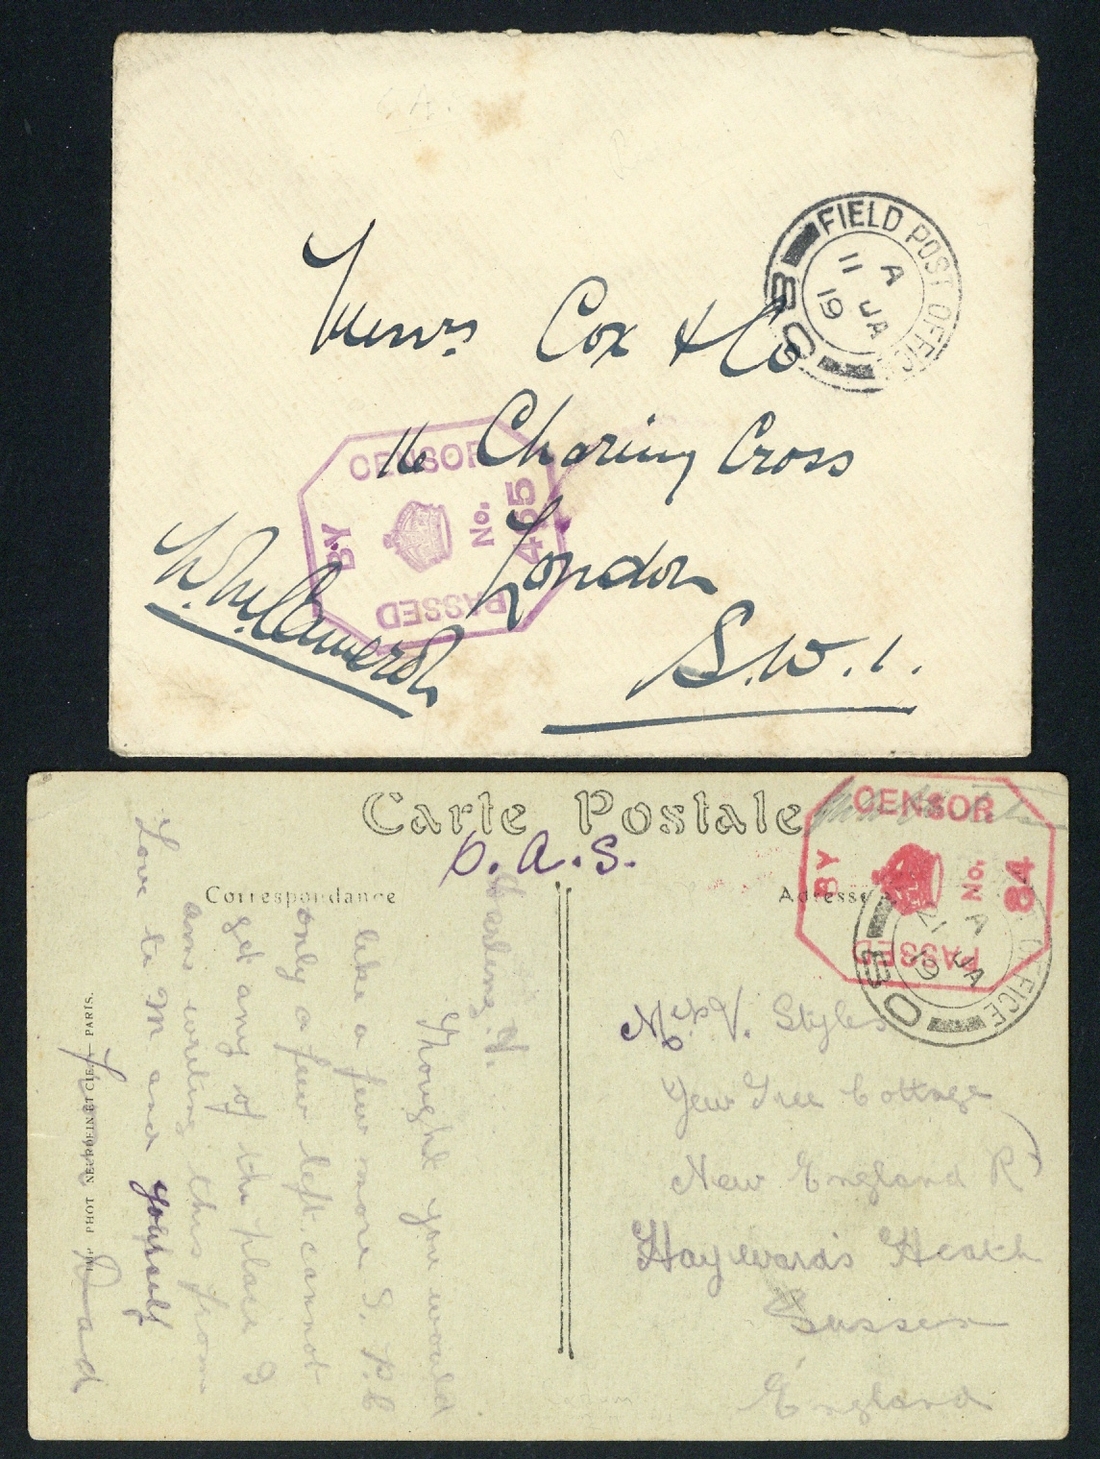 Messrs Cox & Co
16 Charing Cross
London
S.W.1.
FIELD POST OFFICE
A
11 JA
19
B O
CENSOR
BY
No. 465
PASSED
Carte Postale
O.A.S.
Correspondance
Adresse
CENSOR
BY
No. 84
PASSED
OFFICE
A
21 JA
19
B O
V. Styles
Yew Tree Cottage
New England R
Hayward's Heath
Sussex
England
Darling V.
Thought you would
like a few more S. P.C
only a few left. cannot
get any of the place I
am writing this from
Love to M and yourself
Dad
IMP PHOT NEURDEIN ET CIE. — PARIS.